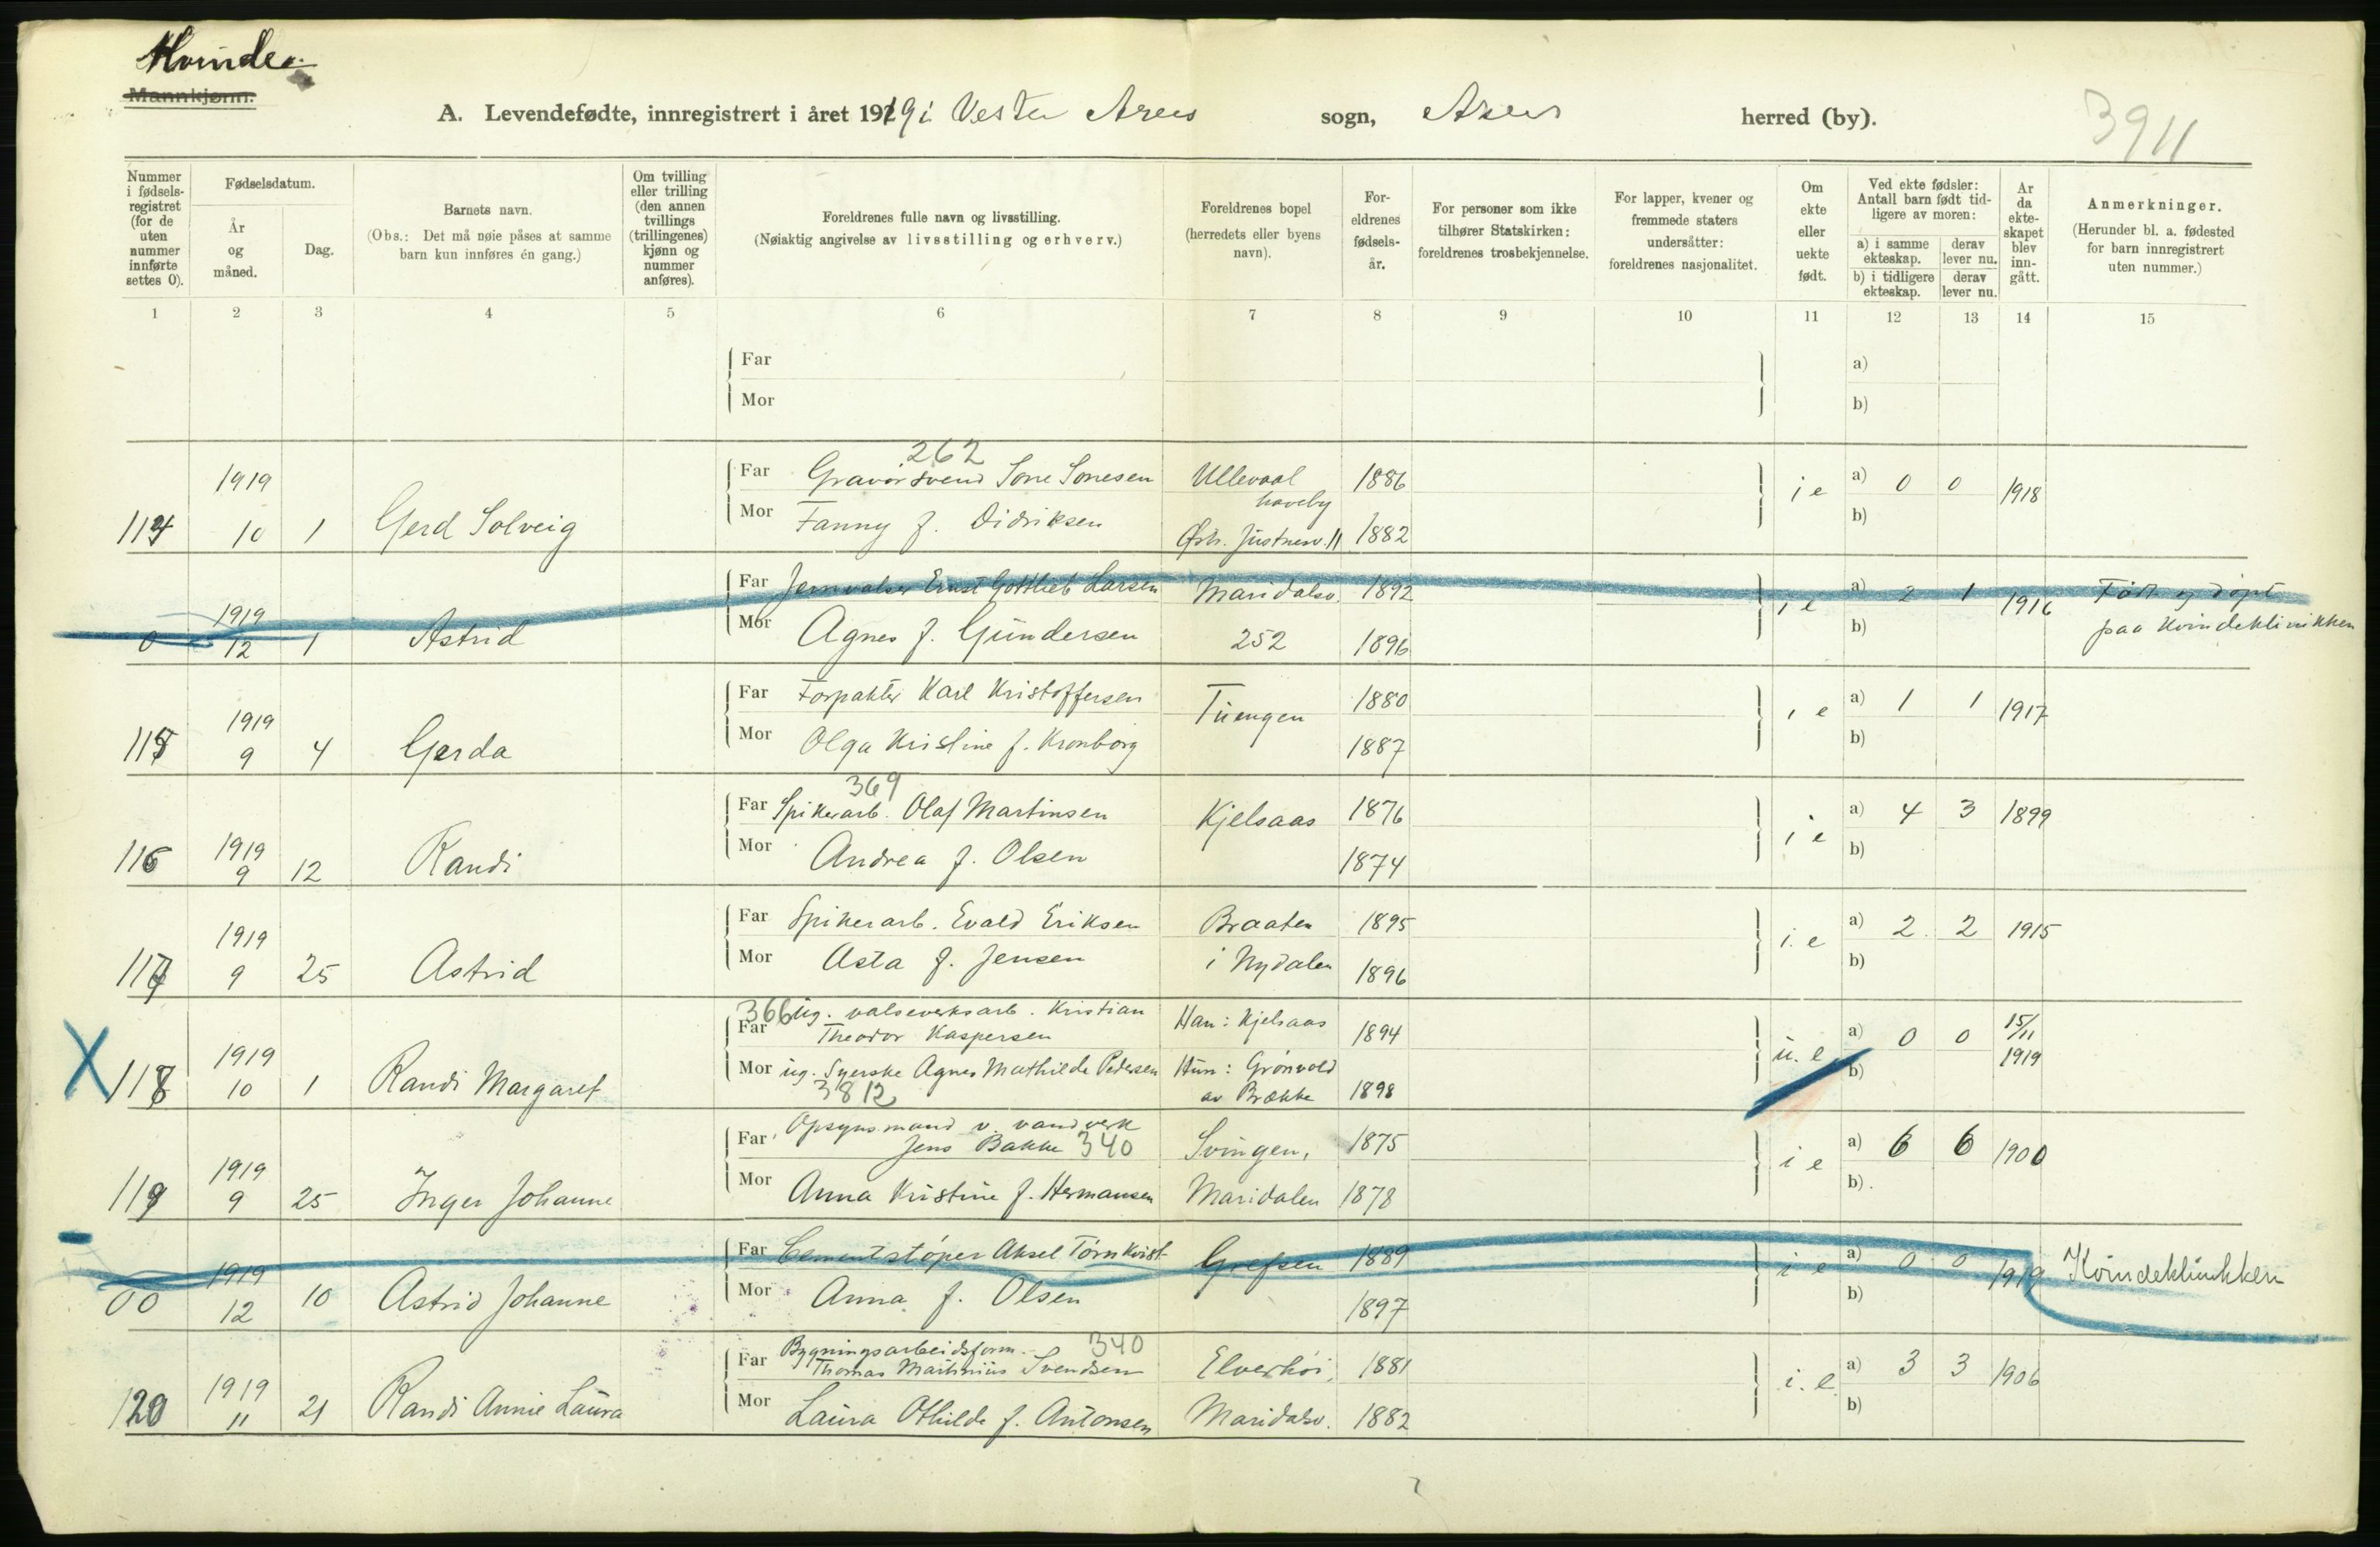 Kvinder.
Mannkjønn.
A. Levendefødte, innregistrert i året 1919 i Vestre Aker sogn, Aker herred (by).
3911
Nummer i fødsels- registret (for de uten nummer innførte settes 0).
Fødselsdatum.
År og måned.
Dag.
Barnets navn.
(Obs.: Det må nøie påses at samme barn kun innføres én gang.)
Om tvilling eller trilling (den annen tvillings (trillingenes) kjønn og nummer anføres).
Foreldrenes fulle navn og livsstilling.
(Nøiaktig angivelse av livsstilling og erhverv.)
Foreldrenes bopel (herredets eller byens navn).
For- eldrenes fødsels- år.
For personer som ikke tilhører Statskirken: foreldrenes trosbekjennelse.
For lapper, kvener og fremmede staters undersåtter: foreldrenes nasjonalitet.
Om ekte eller uekte født.
Ved ekte fødsler: Antall barn født tid- ligere av moren:
a) i samme ekteskap.
derav lever nu.
b) i tidligere ekteskap.
derav lever nu.
År da ekte- skapet blev inn- gått.
Anmerkninger.
(Herunder bl. a. fødested for barn innregistrert uten nummer.)
1 2 3 4 5 6 7 8 9 10 11 12 13 14 15
Far a)
Mor b)
262
1919 Far Gravørsvend Sone Sonesen Ullevaal haveby 1886 i e a) 0 0 1918
114 10 1 Gerd Solveig Mor Fanny f. Didriksen Østr. Justnesv. 11 1882 b)
1919 Far Jernvalser Ernst Gottlieb Larsen Maridalsv. 1892 i e a) 2 1 1916 Født og døpt
0 12 1 Astrid Mor Agnes f. Gundersen 252 1896 b) paa Kvindeklinikken
1919 Far Forpakter Karl Kristoffersen Tuengen 1880 i e a) 1 1 1917
115 9 4 Gerda Mor Olga Kristine f. Kronborg 1887 b)
369
1919 Far Spikerarb. Olaf Martinsen Kjelsaas 1876 i e a) 4 3 1899
116 9 12 Randi Mor Andrea f. Olsen 1874 b)
1919 Far Spikerarb. Evald Eriksen Braaten 1895 i. e a) 2 2 1915
117 9 25 Astrid Mor Asta f. Jensen i Nydalen 1896 b)
366 ug. valseverksarb. Kristian Han: Kjelsaas 15/11
1919 Far Theodor Kaspersen 1894 u. e a) 0 0 1919
X 118 10 1 Randi Margaret Mor ug. Syerske Agnes Mathilde Pedersen Hun: Grønvold b)
3812 av Brække 1898
Opsynsmand v. vandverk
1919 Far Jens Bakke 340 Svingen, 1875 i e a) 6 6 1900
119 9 25 Inger Johanne Mor Anna Kristine f. Hermansen Maridalen 1878 b)
1919 Far Cementstøper Aksel Törnkvist Grefsen 1889 i e a) 0 0 1919 Kvindeklinikken
00 12 10 Astrid Johanne Mor Anna f. Olsen 1897 b)
Bygningsarbeidsform. 340
1919 Far Thomas Mathinius Svendsen Elverhøi, 1881 i. e. a) 3 3 1906
120 11 21 Randi Annie Laura Mor Laura Othilde f. Antonsen Maridalsv. 1882 b)